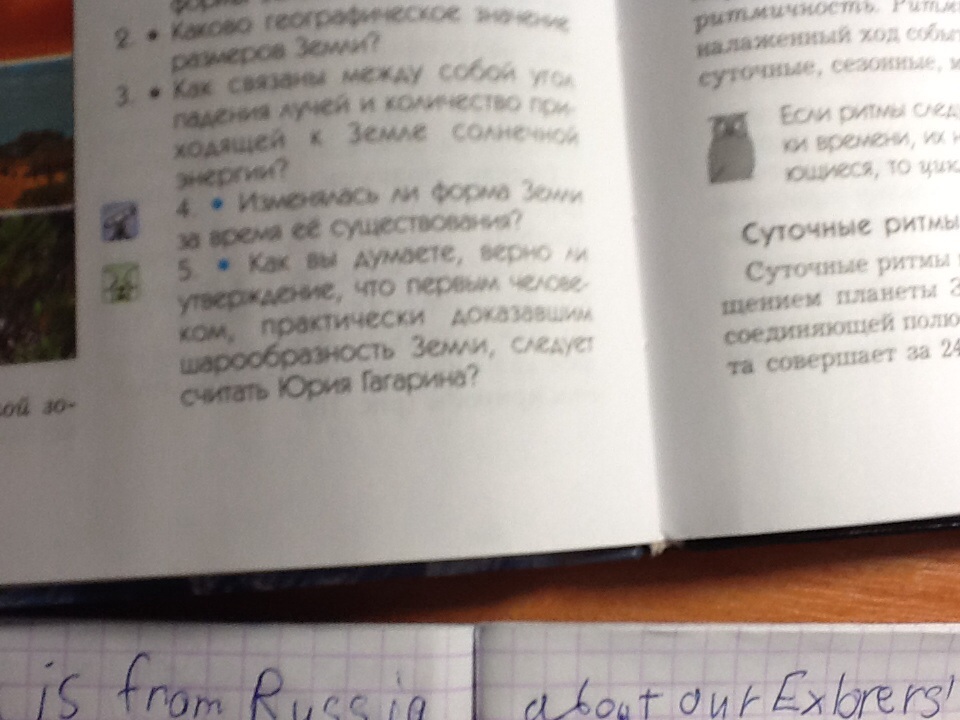 2. • Каково географическое значение
размеров Земли?
3. • Как связаны между собой угол
падения лучей и количество при-
ходящей к Земле солнечной
энергии?
4. • Изменялась ли форма Земли
за время её существования?
5. • Как вы думаете, верно ли
утверждение, что первым челове-
ком, практически доказавшим
шарообразность Земли, следует
считать Юрия Гагарина?
зо-
ритмичность.
налаженный ход
суточные, сезонные,
Если ритмы
ки времени, их
ющиеся, то
Суточные ритмы
Суточные ритмы
щением планеты
соединяющей
та совершает за 24
is from Russia
about our Exlorers'